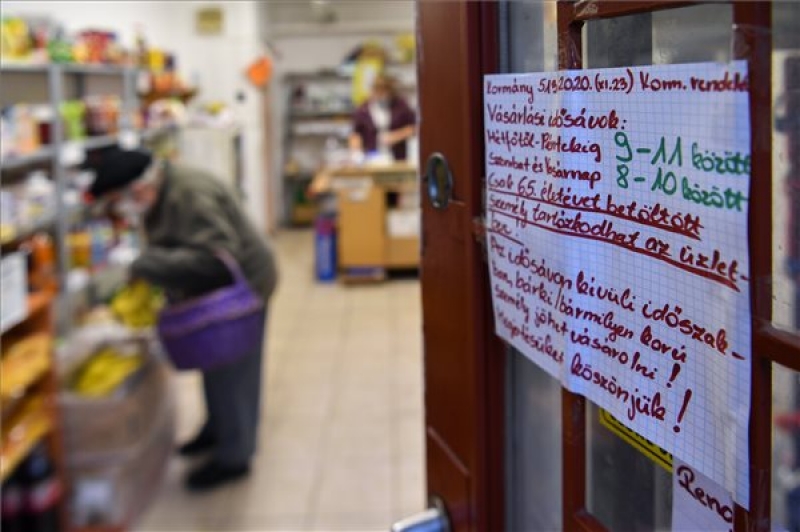 Kormány 513/2020. (XI.23) Korm. rendelet
Vásárlási idősávok:
Hétfőtől-Péntekig 9-11 között
Szombat és vasárnap 8-10 között
Csak 65. életévet betöltött
személy tartózkodhat az üzlet-
ben!
Az idősávon kívüli időszak-
ban bárki/bármilyen korú
személy jöhet vásárolni!
köszönjük!
Rend